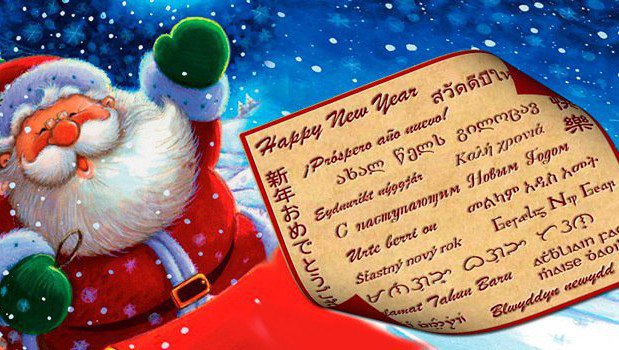 Happy New Year
สวัสดีปีให
快
樂
¡Próspero año nuevo!
ახალ წელს გილოცავ
Καλή χρονιά
新年おめでとう
Eydnurikt nýggjár
С наступающим Новым Годом
መልካም አዲስ አመት
Urte berri on
Šťastný nový rok
elamat Tahun Baru
Blwyddyn newydd